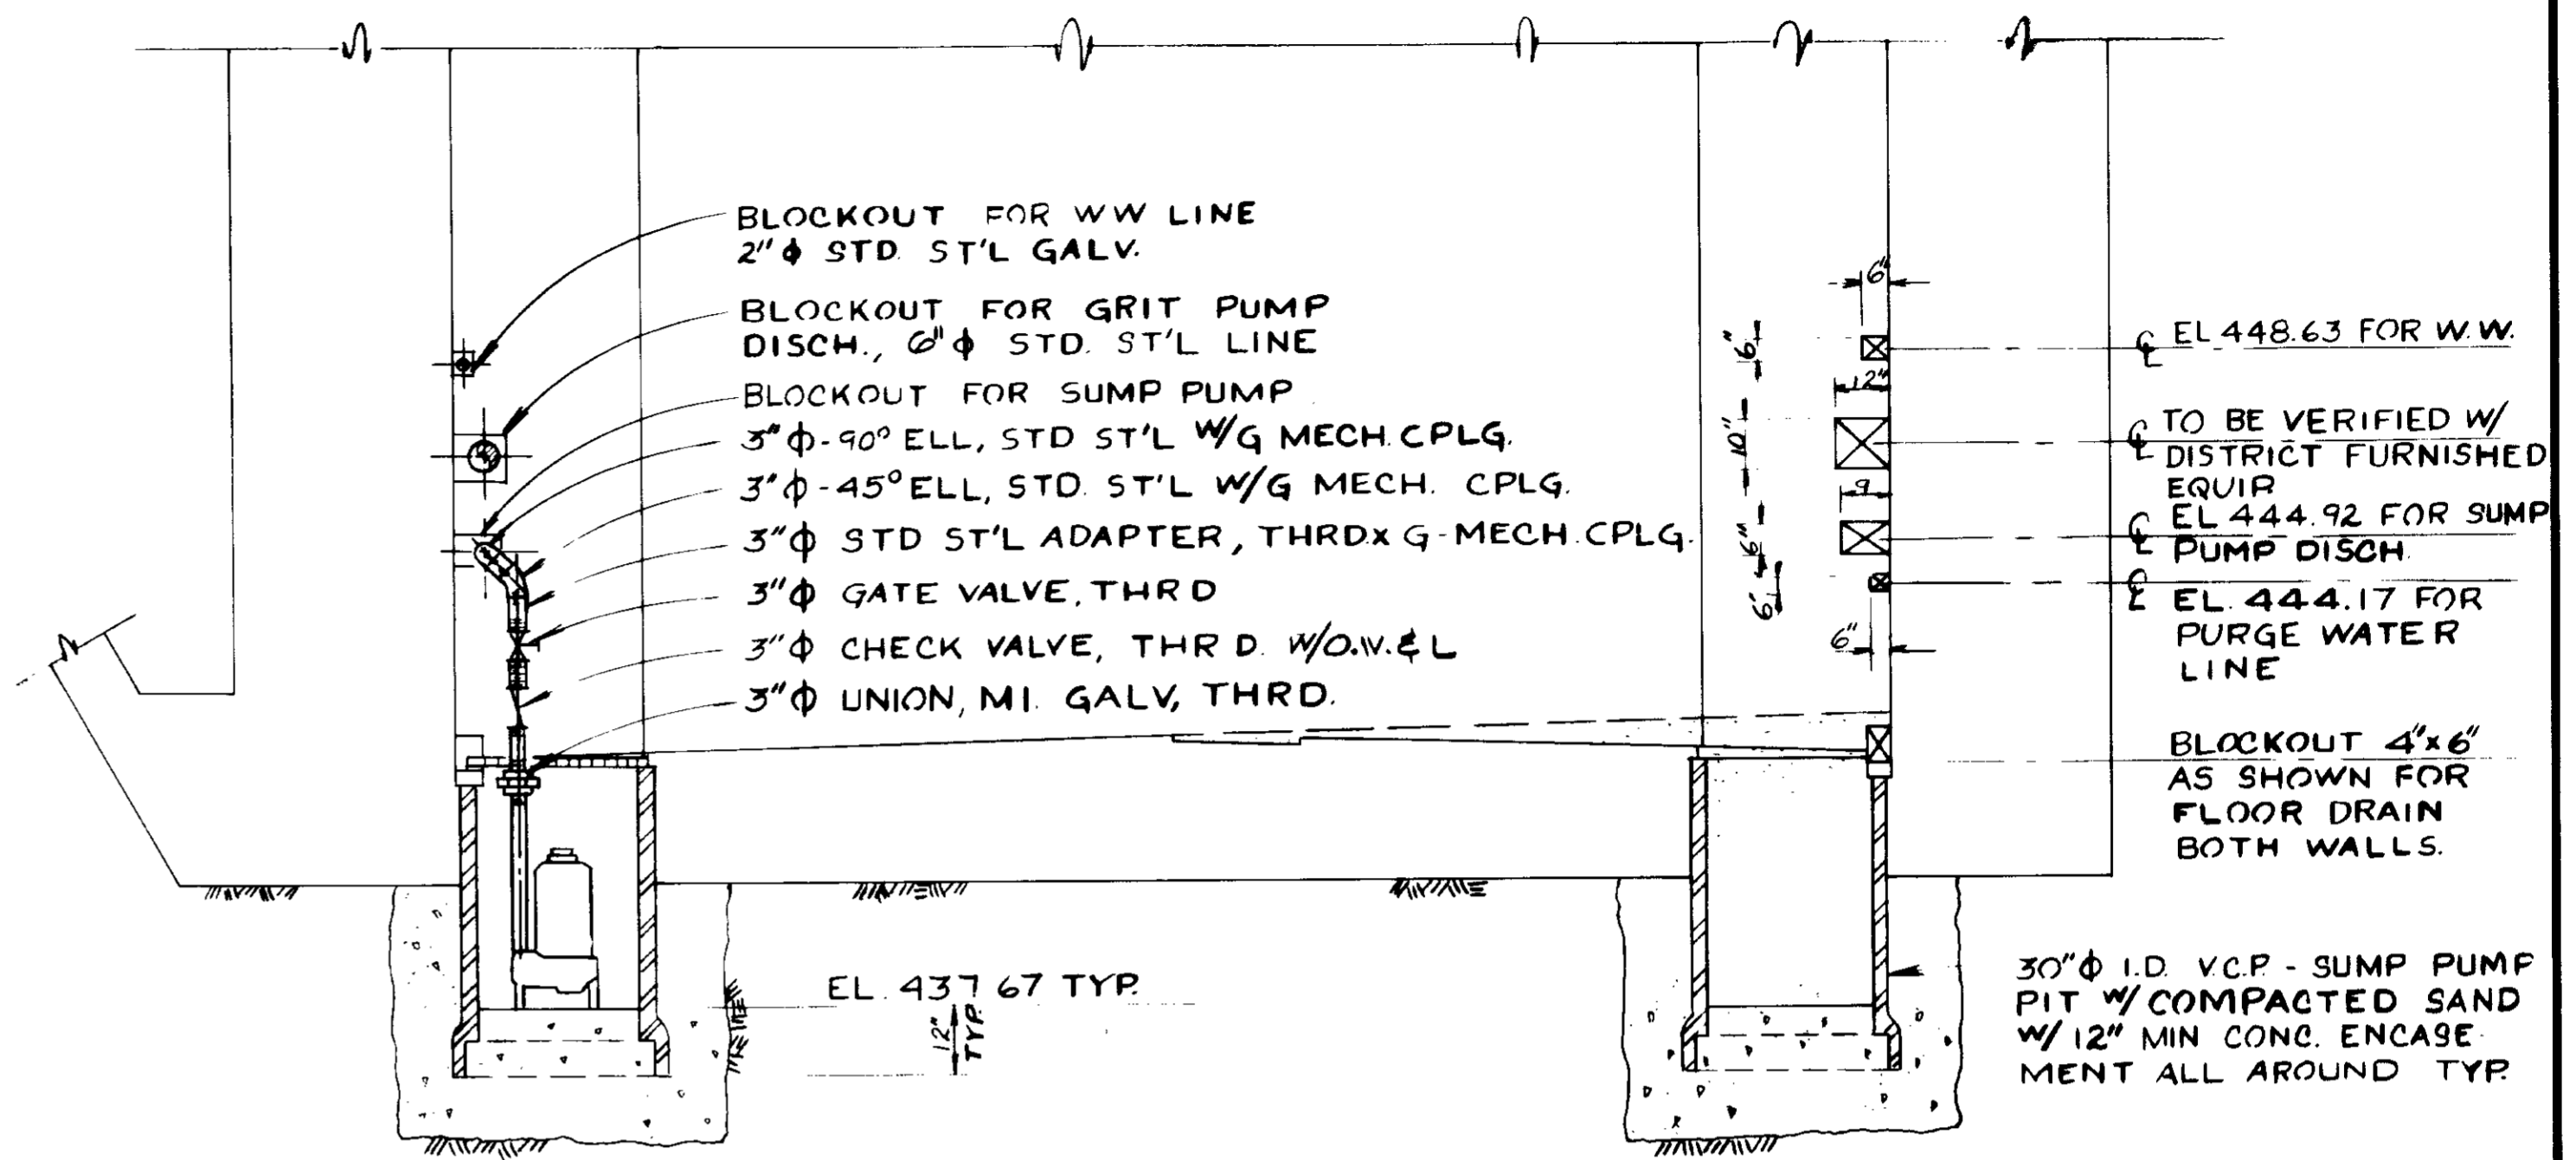 BLOCKOUT FOR WW LINE
2"ϕ STD. ST'L GALV.
BLOCKOUT FOR GRIT PUMP
DISCH., 6"ϕ STD. ST'L LINE
BLOCKOUT FOR SUMP PUMP
3"ϕ-90° ELL, STD ST'L W/G MECH. CPLG.
3"ϕ-45° ELL, STD. ST'L W/G MECH. CPLG.
3"ϕ STD ST'L ADAPTER, THRD X G-MECH. CPLG.
3"ϕ GATE VALVE, THRD
3"ϕ CHECK VALVE, THRD. W/O.W. & L
3"ϕ UNION, MI. GALV, THRD.
EL. 437 67 TYP.
12"
TYP.
6"
12"
9
6"
6"
10"
6"
6"
℄ EL 448.63 FOR W.W.
℄ TO BE VERIFIED W/
DISTRICT FURNISHED
EQUIP
℄ EL 444.92 FOR SUMP
PUMP DISCH.
℄ EL. 444.17 FOR
PURGE WATER
LINE
BLOCKOUT 4"x6"
AS SHOWN FOR
FLOOR DRAIN
BOTH WALLS.
30"ϕ I.D. V.C.P. - SUMP PUMP
PIT W/ COMPACTED SAND
W/ 12" MIN CONC. ENCASE-
MENT ALL AROUND TYP.